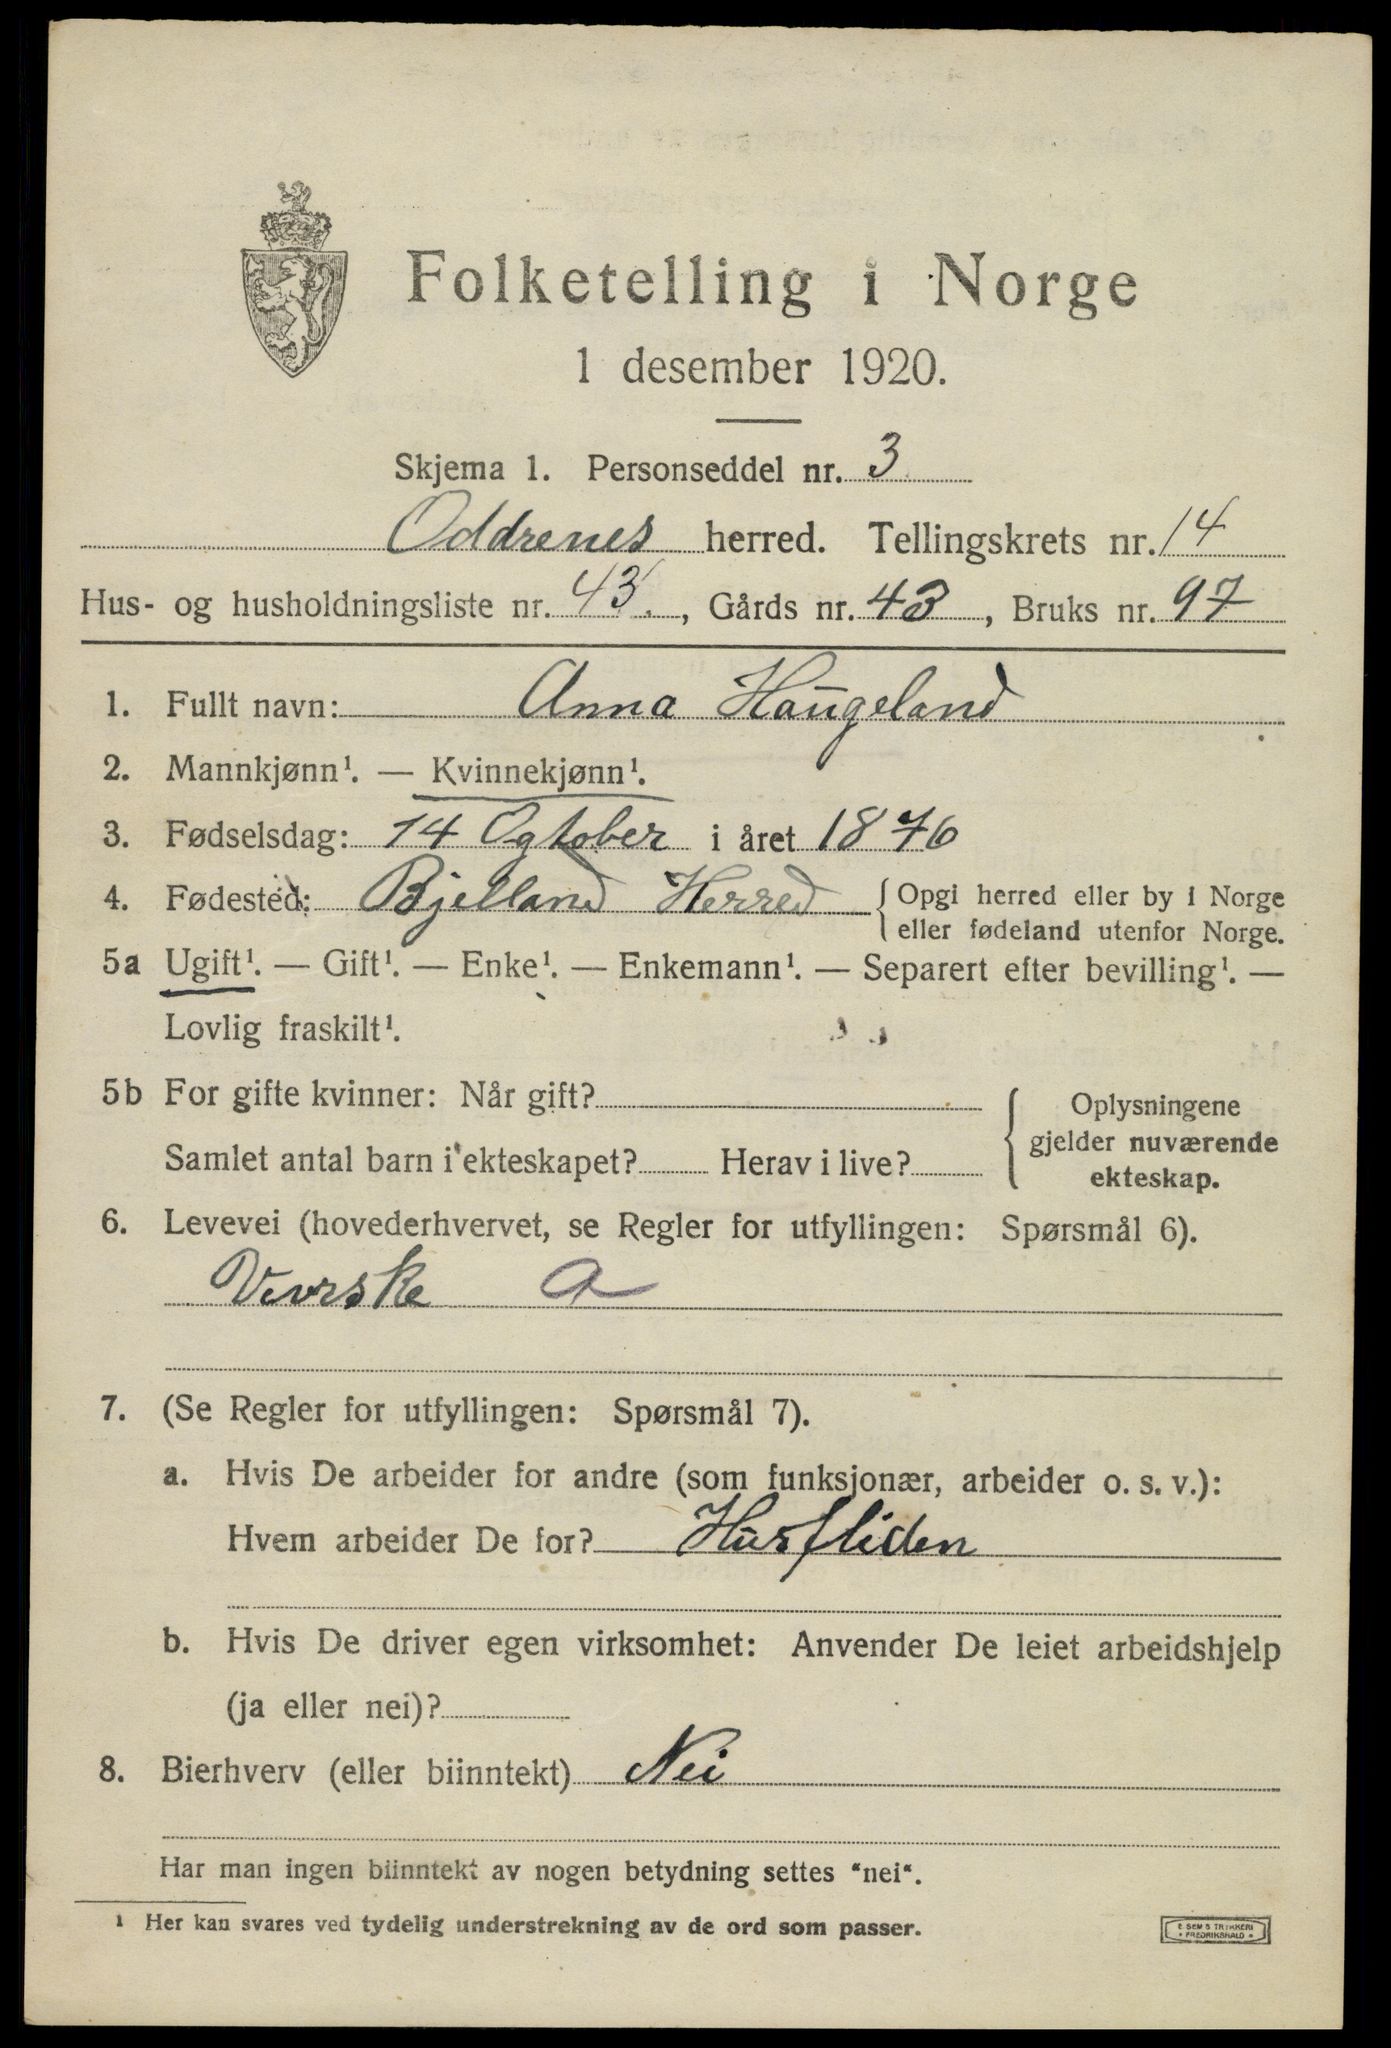 Folketelling i Norge
1 desember 1920.
Skjema 1. Personseddel nr. 3
Oddrenes herred. Tellingskrets nr. 14
Hus- og husholdningsliste nr. 43., Gårds nr. 43, Bruks nr. 97
1. Fullt navn: Anna Haugeland
2. Mannkjønn¹. — Kvinnekjønn¹.
3. Fødselsdag: 14 Ogtober i året 1876
4. Fødested: Bjelland Herred {Opgi herred eller by i Norge
eller fødeland utenfor Norge.
5a Ugift¹. — Gift¹. — Enke¹. — Enkemann¹. — Separert efter bevilling¹. —
Lovlig fraskilt¹.
5b For gifte kvinner: Når gift?
Samlet antal barn i ekteskapet? Herav i live?
Oplysningene
gjelder nuværende
ekteskap.
6. Levevei (hovederhvervet, se Regler for utfyllingen: Spørsmål 6).
Veverske a
7. (Se Regler for utfyllingen: Spørsmål 7).
a. Hvis De arbeider for andre (som funksjonær, arbeider o. s. v.):
Hvem arbeider De for? Husfliden
b. Hvis De driver egen virksomhet: Anvender De leiet arbeidshjelp
(ja eller nei)?
8. Bierhverv (eller biinntekt) Nei
Har man ingen biinntekt av nogen betydning settes "nei".
¹ Her kan svares ved tydelig understrekning av de ord som passer.
E SEMS TRYKKERI
• FREDRIKSHALD •